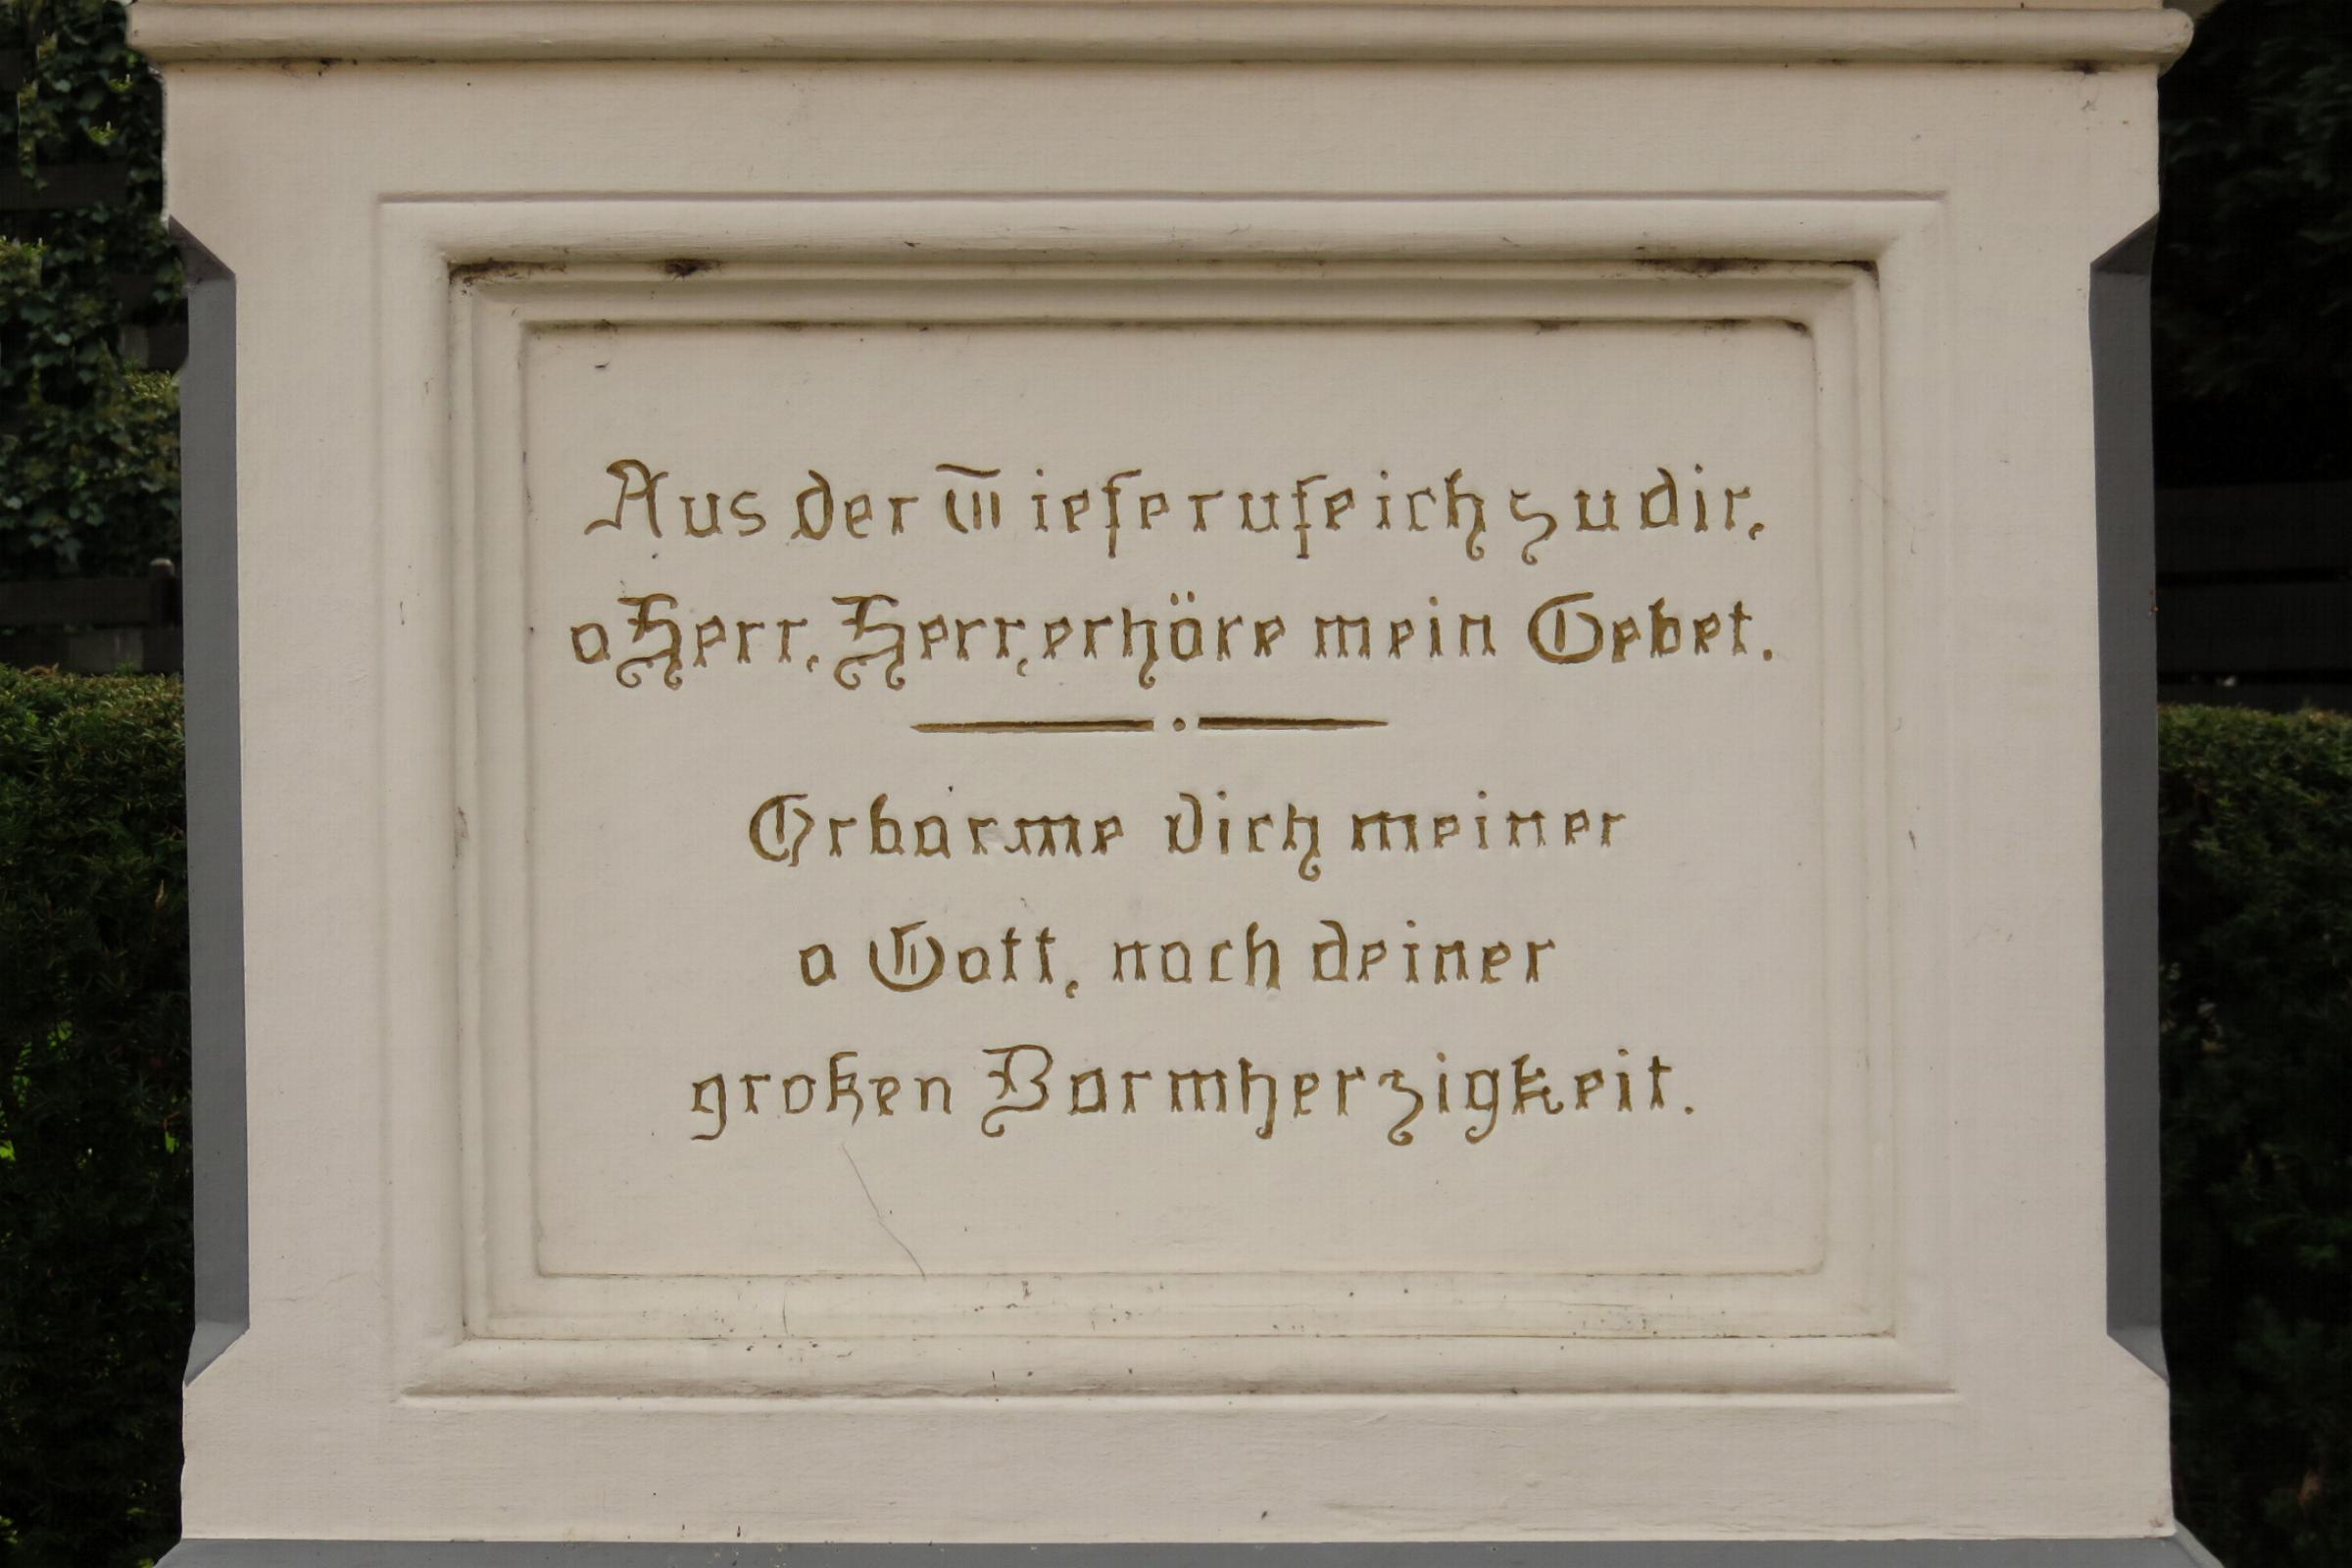 Aus der Tiefe rufe ich zu dir,
o Herr, Herr, erhöre mein Gebet.
Erbarme dich meiner
o Gott, nach deiner
großen Barmherzigkeit.